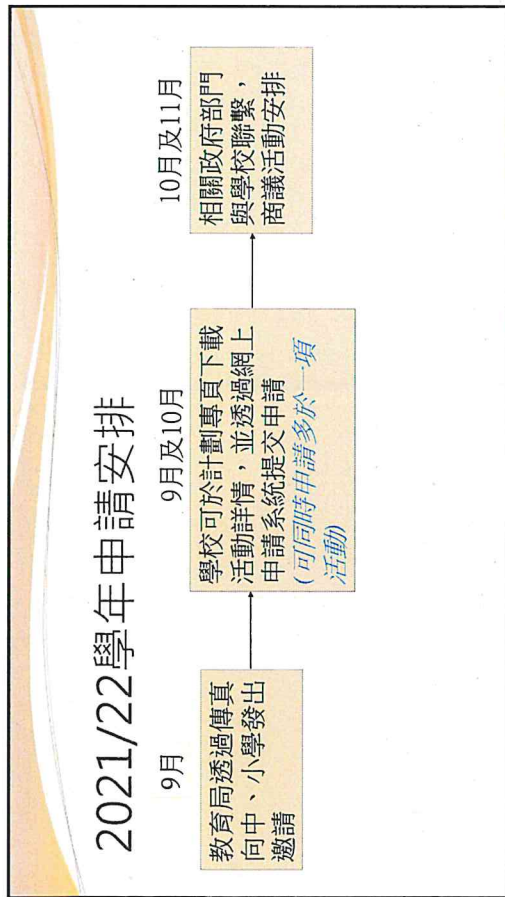 2021/22學年申請安排
9月
教育局透過傳真
向中、小學發出
邀請
9月及10月
學校可於計劃專頁下載
活動詳情，並透過網上
申請系統提交申請
(可同時申請多於一項
活動)
10月及11月
相關政府部門
與學校聯繫，
商議活動安排